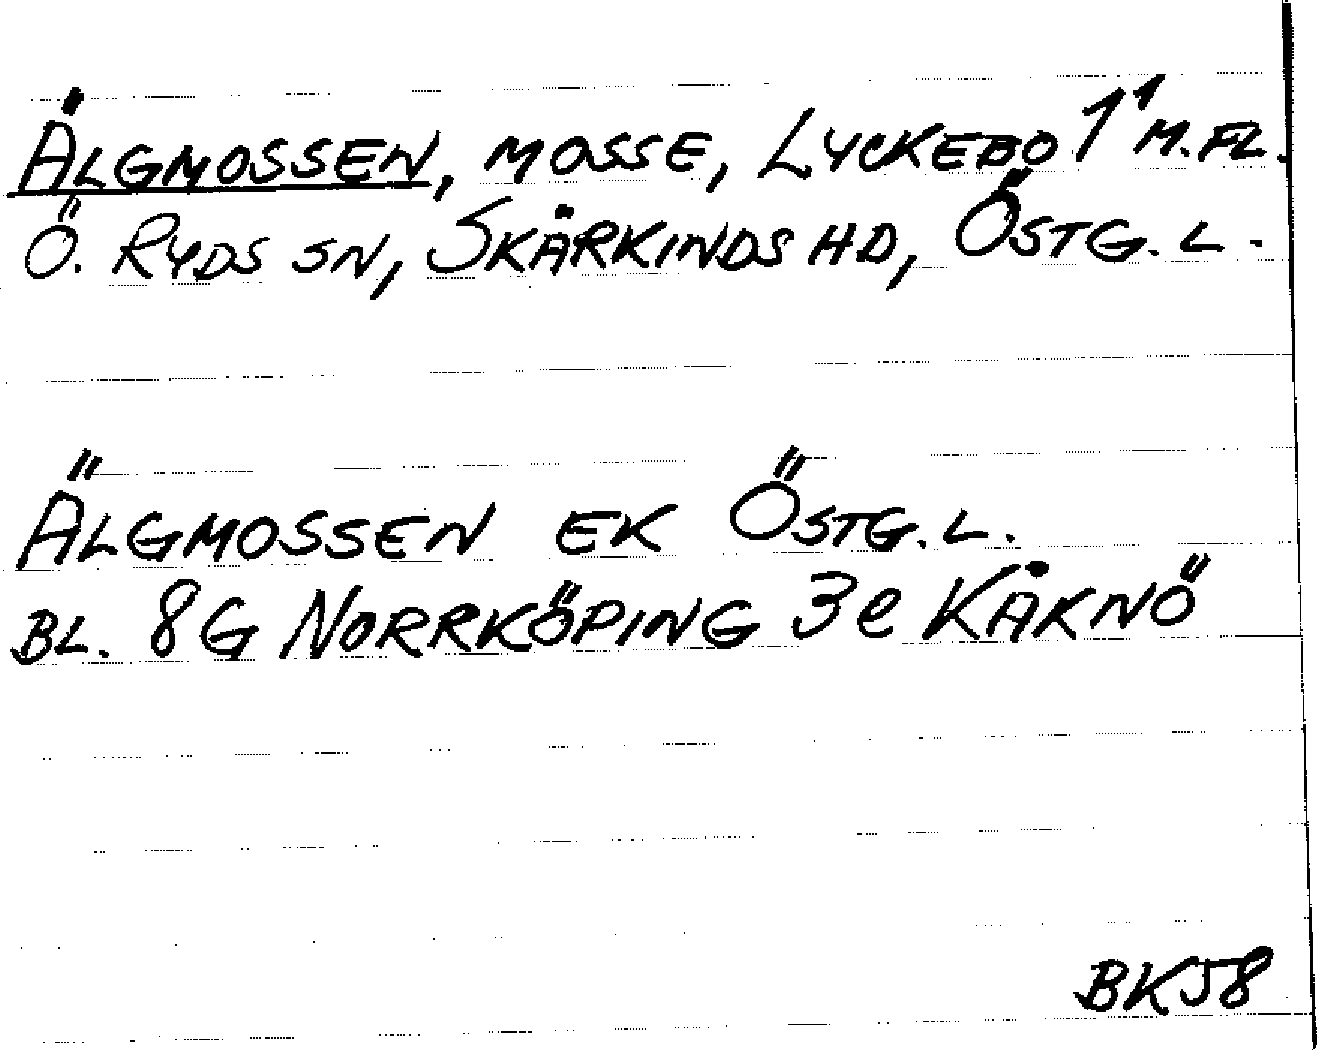 ÄLGMOSSEN, MOSSE, LYCKEBO 1¹ M.FL.
Ö. RYDS SN, SKÄRKINDS HD, ÖSTG. L.
ÄLGMOSSEN EK ÖSTG. L.
BL. 8G NORRKÖPING 3e KÅKNÖ
BK58